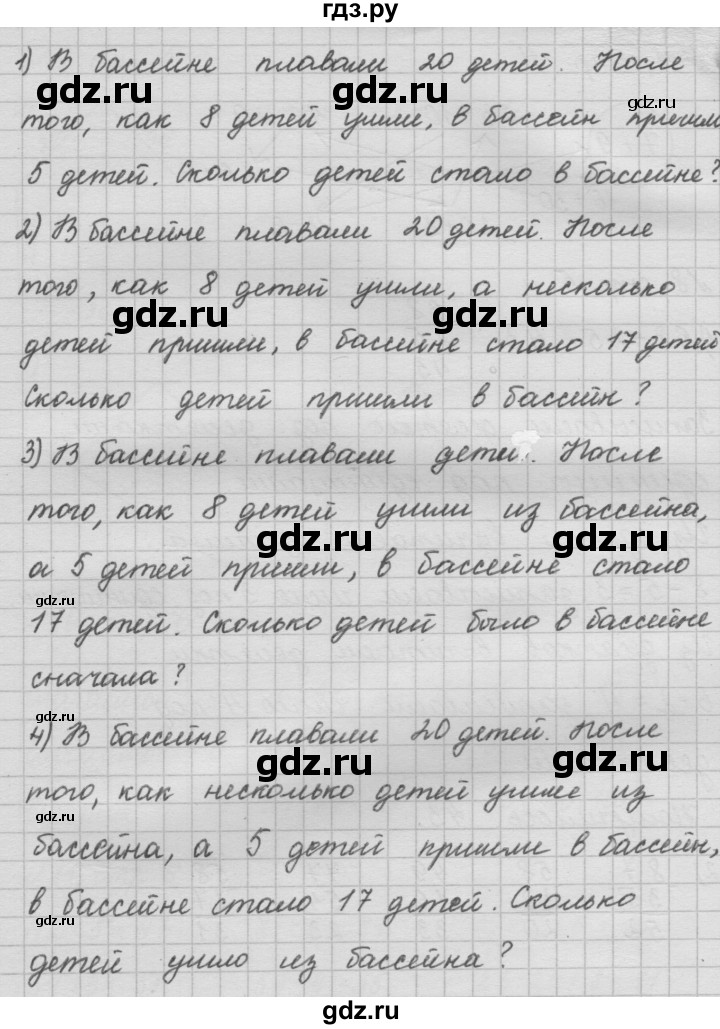 гдз.ру
1) В бассейне плавали 20 детей. После
gdz.ru gdz.ru gdz.ru
того, как 8 детей ушли, в бассейн пришли
5 детей. Сколько детей стало в бассейне?
gdz.ru
2) В бассейне плавали 20 детей. После
того, как 8 детей ушли, а несколько
gdz.ru gdz.ru
детей пришли, в бассейне стало 17 детей
Сколько детей пришли в бассейн?
gdz.ru gdz.ru
3) В бассейне плавали дети. После
того, как 8 детей ушли из бассейна,
gdz.ru gdz.ru
а 5 детей пришли, в бассейне стало
gdz.ru
17 детей. Сколько детей было в бассейне
сначала?
gdz.ru
4) В бассейне плавали 20 детей. После
gdz.ru gdz.ru
того, как несколько детей ушли из
бассейна, а 5 детей пришли в бассейн,
в бассейне стало 17 детей. Сколько
gdz.ru gdz.ru gdz.ru
детей ушло из бассейна?
gdz.ru